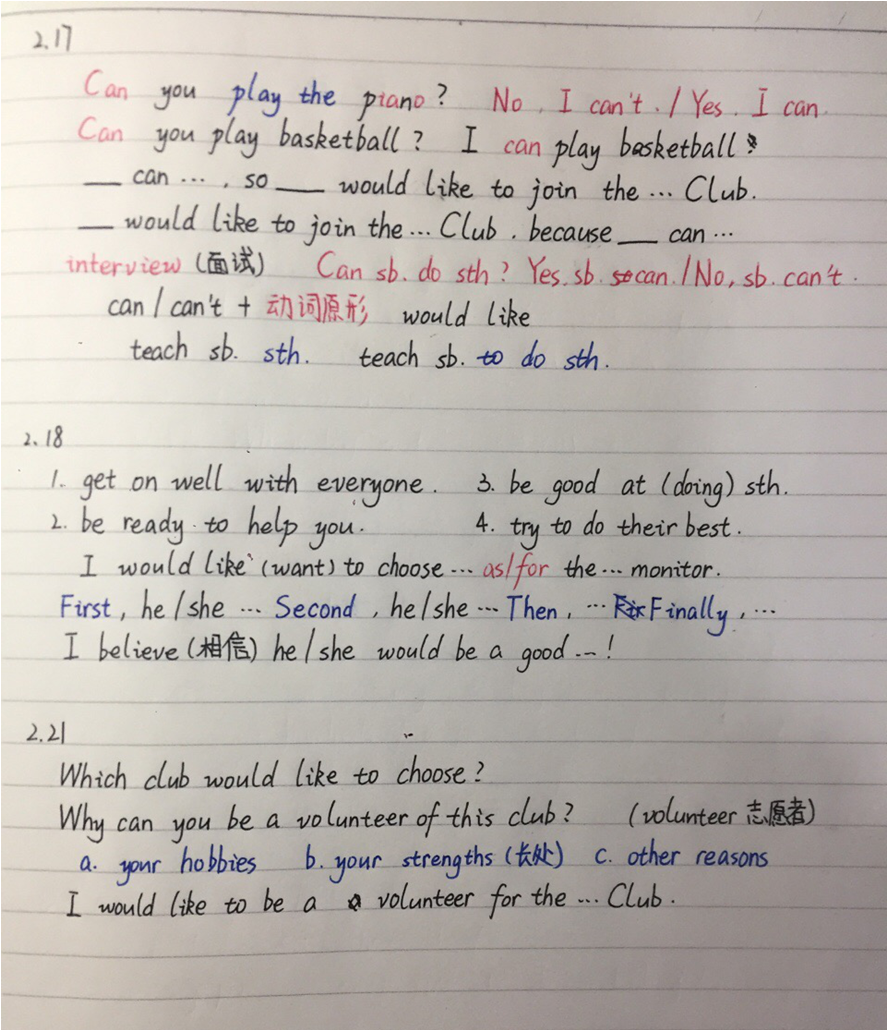 2.17
Can you play the piano? No, I can't. / Yes. I can
Can you play basketball? I can play basketball.
__ can ..., so __ would like to join the ... Club.
__ would like to join the ... Club. because __ can ...
interview (面试) Can sb. do sth? Yes, sb. can. / No, sb. can't.
can / can't + 动词原形 would like
teach sb. sth. teach sb. to do sth.
2.18
1. get on well with everyone. 3. be good at (doing) sth.
2. be ready to help you. 4. try to do their best.
I would like (want) to choose ... as/for the ... monitor.
First, he/she ... Second, he/she ... Then, ... Finally, ...
I believe (相信) he/she would be a good ... !
2.21
Which club would like to choose?
Why can you be a volunteer of this club? (volunteer 志愿者)
a. your hobbies b. your strengths (长处) c. other reasons
I would like to be a volunteer for the ... Club.